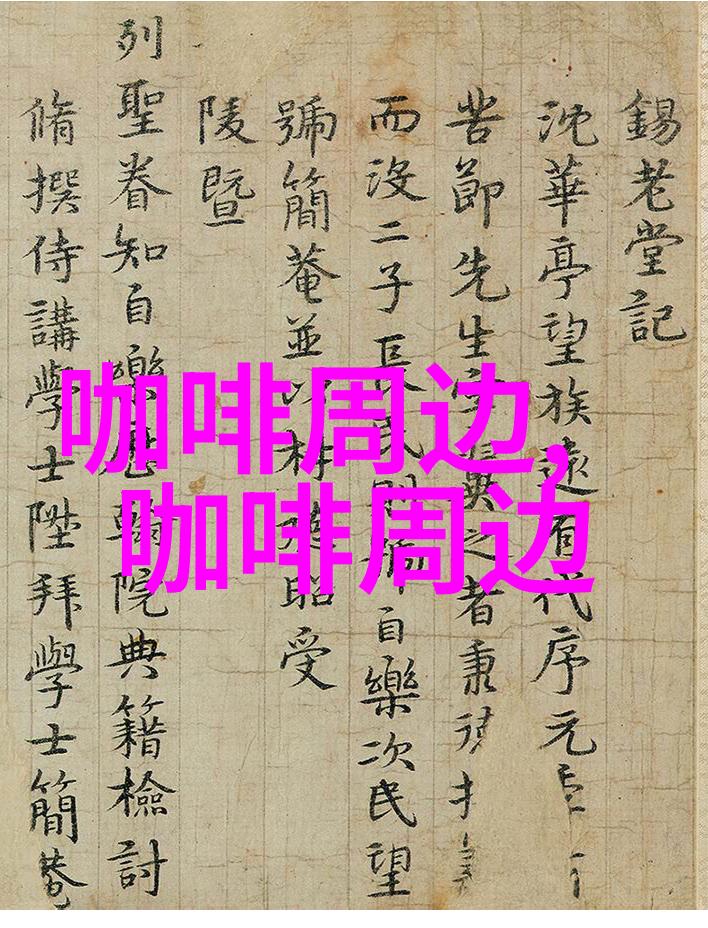 錫老堂記
沈華亭望族遠有代序元
苦節先生之者秉
而沒二子長民則號自樂次民望
號簡菴並以材昭受
陵暨
列聖眷知自樂翰院典籍檢討
脩撰侍講學士陞拜學士簡菴
咖啡周边,
咖啡周边